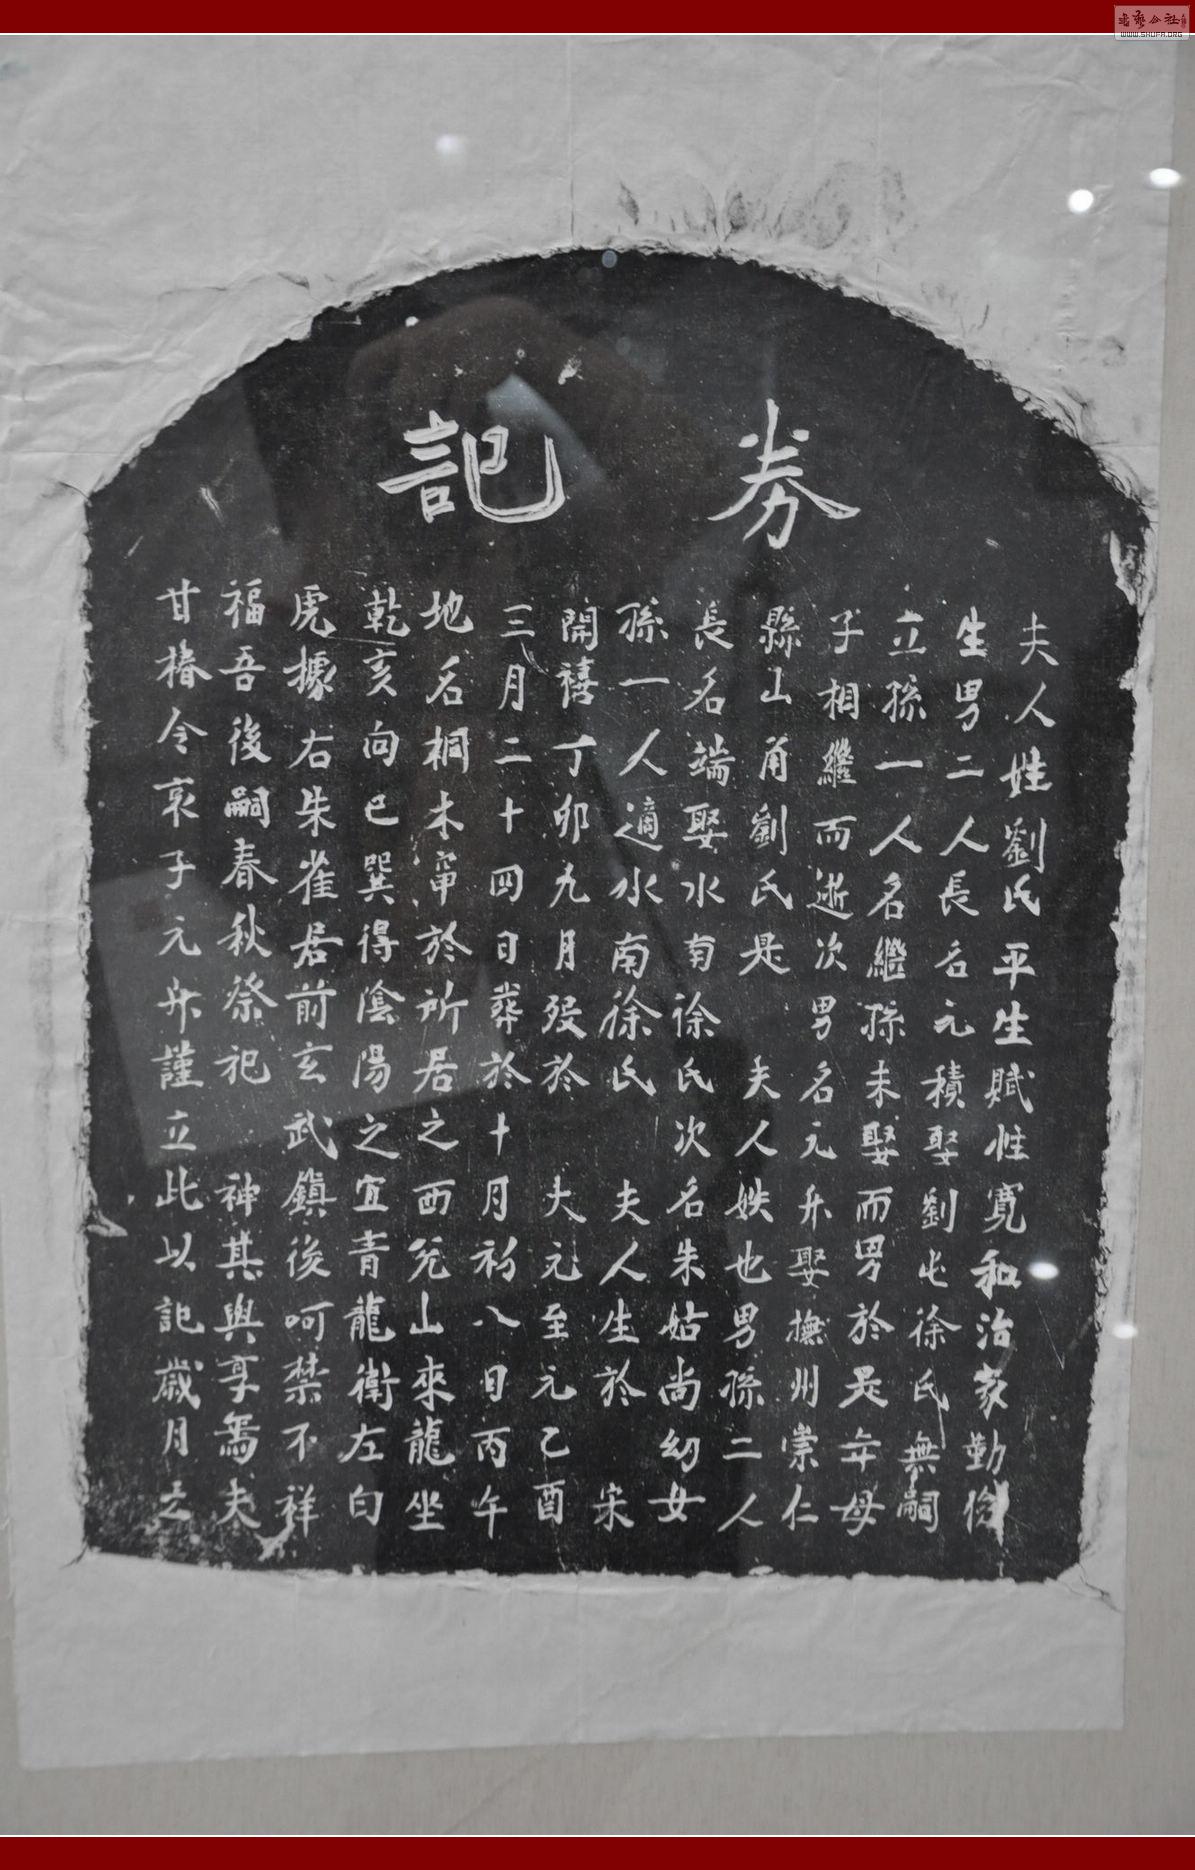 券記
夫人姓劉氏平生賦性寬和治家勤儉
生男二人長名元積娶劉屯徐氏無嗣
立孫一人名繼孫未娶而男於是年母
子相繼而逝次男名元升娶撫州崇仁
縣山角劉氏是 夫人姪也男孫二人
長名端娶水南徐氏次名朱姑尚幼女
孫一人適水南徐氏 夫人生於 宋
開禧丁卯九月歿於 大元至元乙酉
三月二十四日葬於十月初八日丙午
地名桐木窜於所居之西兌山來龍坐
乾亥向巳巽得陰陽之宜青龍衛左白
虎據右朱雀居前玄武鎮後呵禁不祥
福吾後嗣春秋祭祀 神其與享焉夫
甘椿令哀子元升謹立此以記歲月云
WWW.SHUFA.ORG